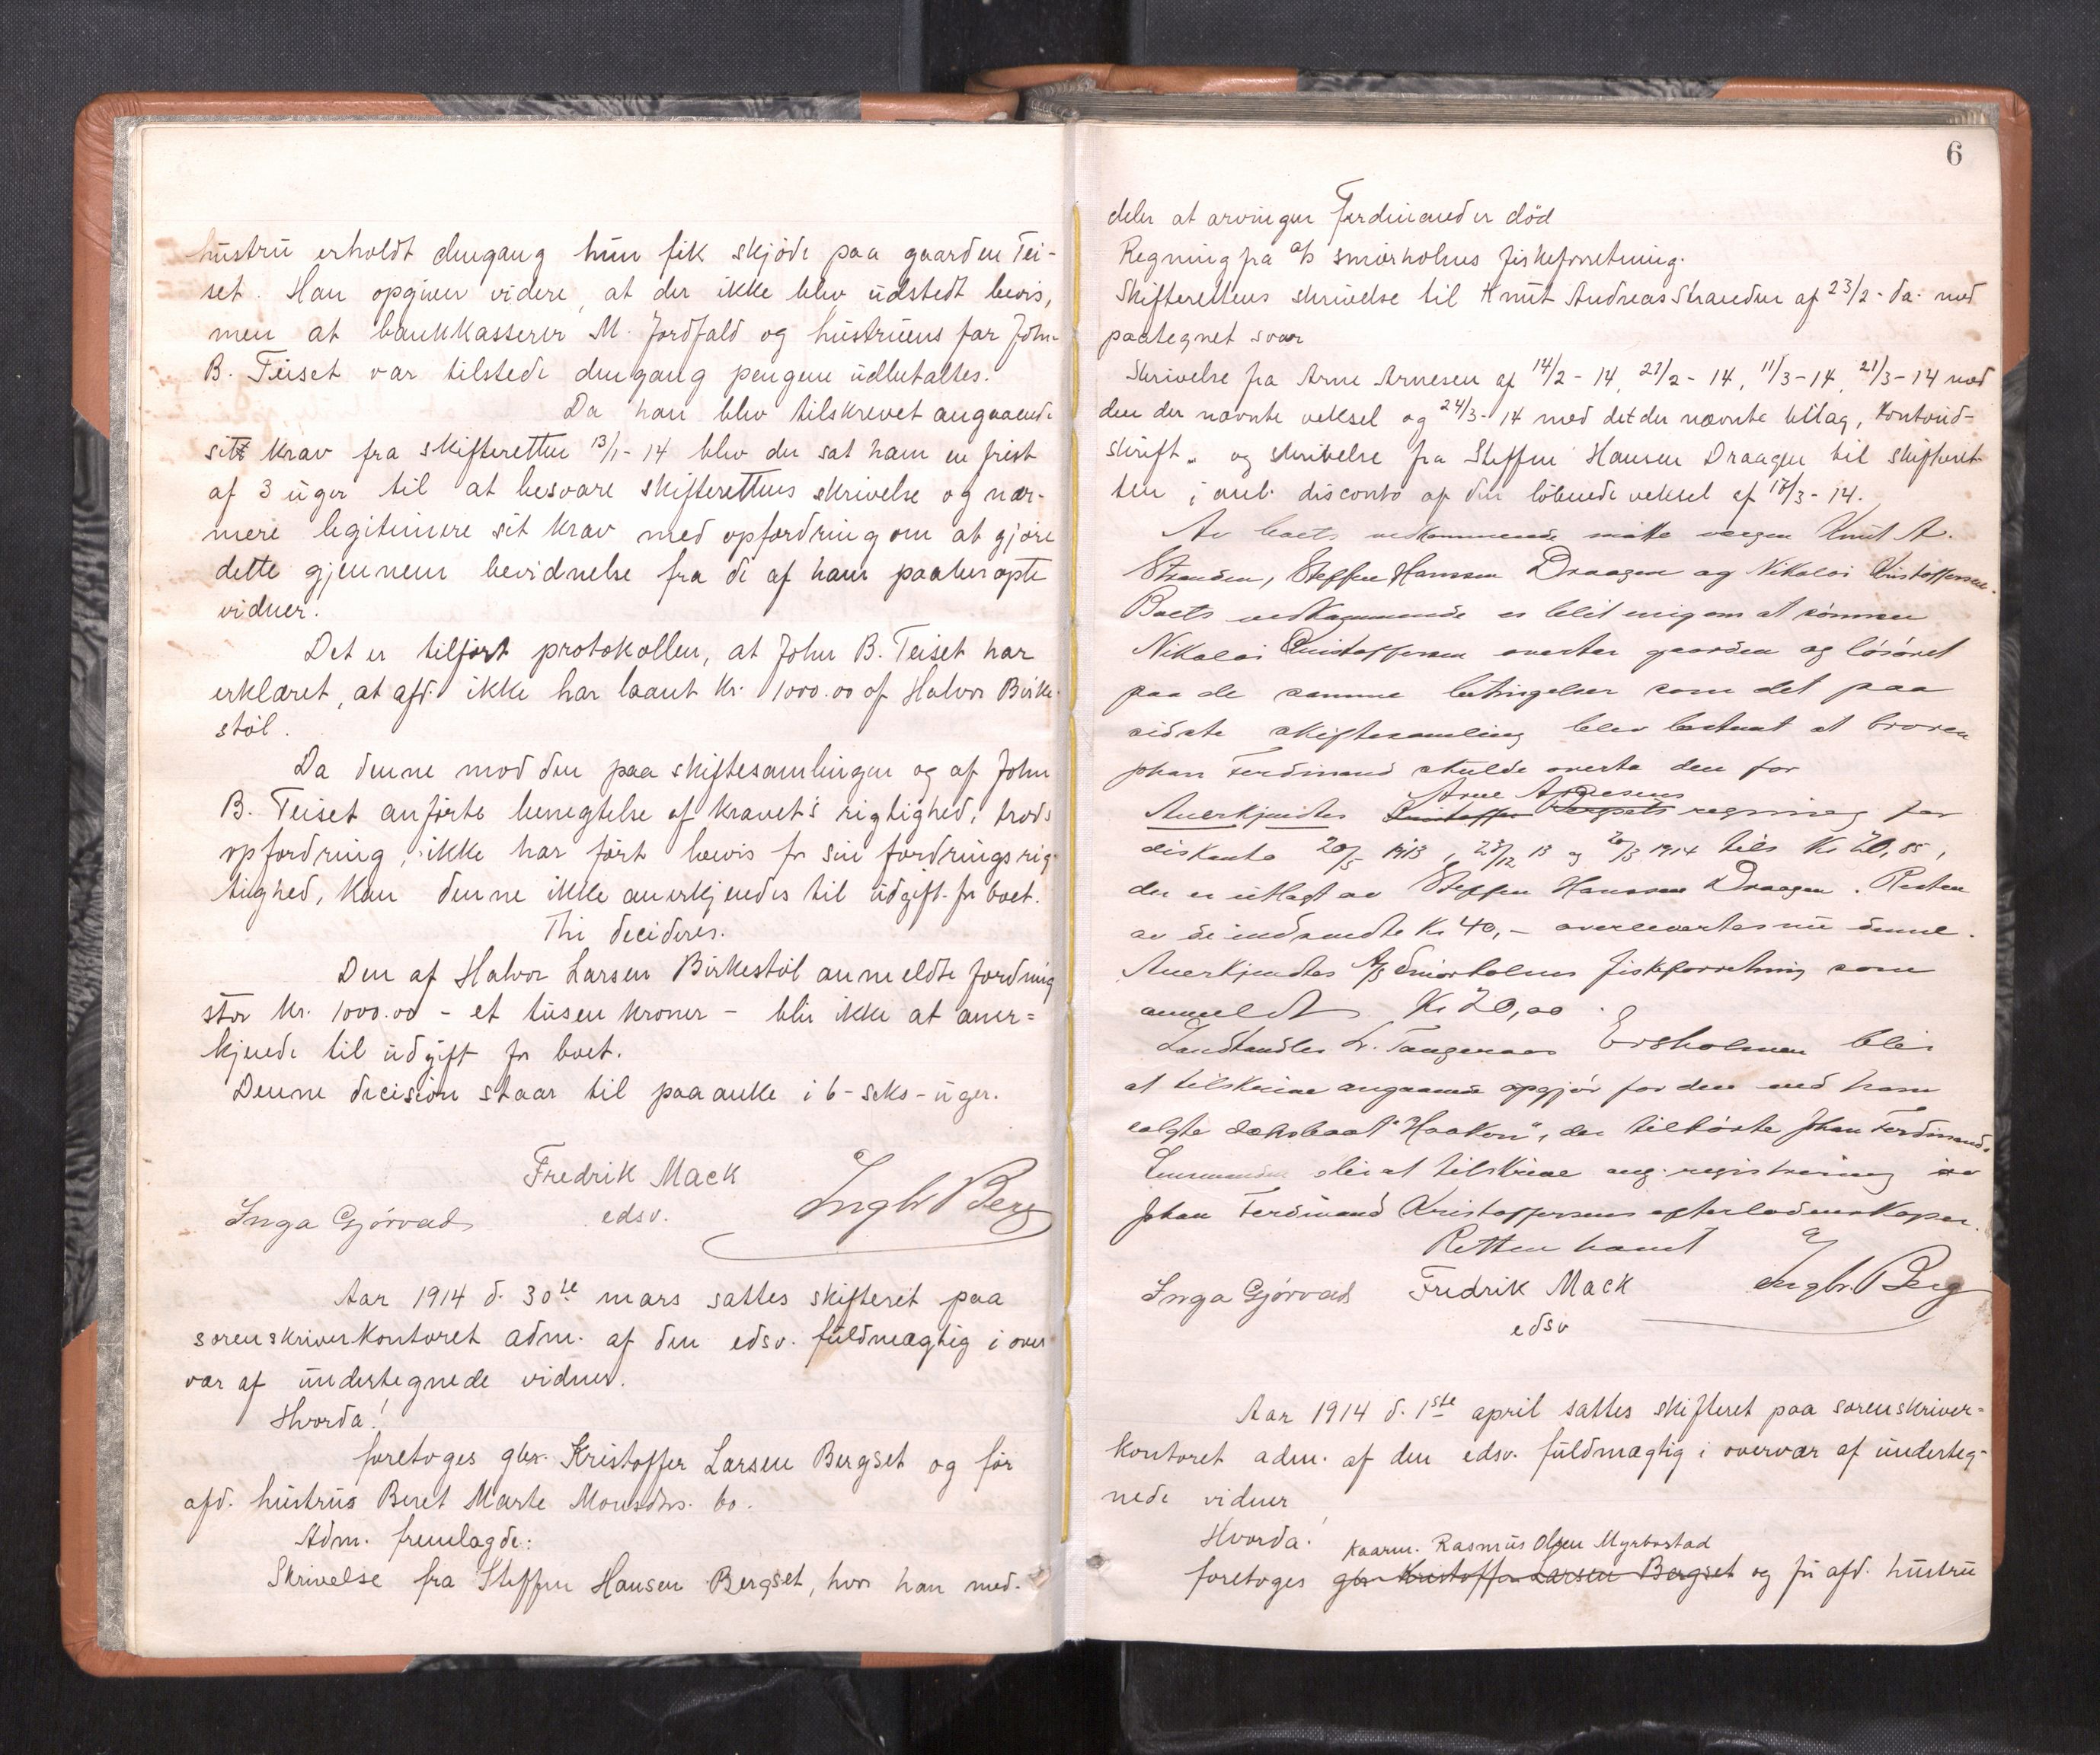 hustru erholdt dengang hun fik skjöde paa gaarden Tei-
set. Han opgiver videre, at der ikke blev udstedt bevis,
men at bankkasserer M. Jordfald og hustruens far John
B. Teiset var tilstede dengang pengene udbetaltes.
Da han blev tilskrevet angaaende
sitt krav fra skifteretten 13/1-14 blev der sat ham en frist
af 3 uger til at besvare skifterettens skrivelse og nær-
mere legitimere sit krav med opfordring om at gjöre
dette gjennem bevidnelse fra de af ham paaberopte
vidner.
Det er tilfört protokollen, at John B. Teiset har
erklæret, at afd. ikke har laant kr. 1000.00 af Halvor Birke-
stöl.
Da denne mod den paa skiftesamlingen og af John
B. Teiset anförte benegtelse af kravet's rigtighed, trods
opfordring, ikke har fört bevis for sin fordrings rig-
tighed, kan denne ikke anerkjendes til udgift for boet.
Thi decideres.
Den af Halvor Larsen Birkestöl anmeldte fordring
stor kr. 1000.00 - et tusen kroner - blir ikke at aner=
kjende til udgift for boet.
Denne decision staar til paaanke i 6-seks-uger.
Fredrik Mack
Inga Gjörvad edsv. Ingbr Berg
Aar 1914 d. 30te mars sattes skifteret paa
sorenskriverkontoret adm. af den edsv. fuldmægtig i over-
vær af undertegnede vidner.
Hvorda!
foretoges gbr. Kristoffer Larsen Bergset og for
afd. hustrus Beret Marte Monsdrs. bo.
Adm. fremlagde:
Skrivelse fra Steffen Hansen Bergset, hvor han med-
6
deler at arvingen Ferdinand er död
Regning fra a/s Smörholms fiskeforretning.
Skifterettens skrivelse til Knut Andreas Stranden af 23/2-da. med
paategnet svar
Skrivelse fra Arne Arnesen af 14/2-14, 21/2-14, 11/3-14, 21/3-14 med
den der nævnte veksel og 24/3-14 med det der nævnte bilag, kontoud-
skrift. og skrivelse fra Steffen Hansen Draagen til skifteret-
ten i anl. disconto af den löbende veksel af 17/3-14.
Av boets vedkommende mötte vergen Knut A.
Stranden, Steffen Hanssen Draagen og Nikolai Kristoffersen.
Boets vedkommende er blit enig om at sönnen
Nikolai Kristoffersen overtar gaarden og lösöret
paa de samme betingelser som det paa
sidste skiftesamling blev bestemt at broren
Johan Ferdinand skulde overta den for
Arne Arnesens
Anerkjendtes Kristoffer Bergsets regning for
diskonto 20/5 1913, 23/12 13 og 20/3 1914 tils kr 20,85,
der er utlagt av Steffen Hanssen Draagen. Resten
av de indsendte kr 40,- overlevertes nu denne.
Anerkjendtes A/S Smörholms fiskeforretning som
anmeldt kr 20,00.
Landhandler L. Tangeraas Ersholmen blir
at tilskrive angaaende opgjör for den ved ham
solgte dæksbaat "Haakon", der tilhörte Johan Ferdinand.
Lensmanden blir at tilskrive ang. registrering av
Johan Ferdinand Kristoffersens efterladenskaper.
Retten hævet
Inga Gjörvad Fredrik Mack Ingbr. Berg
edsv
Aar 1914 d. 1ste april sattes skifteret paa sorenskriver=
kontoret adm. af den edsv. fuldmægtig i overvær af underteg-
nede vidner
Hvorda!
kaarm. Rasmus Olsen Myrbostad
foretoges gbr Kristoffer Larsen Bergset og for afd. hustru